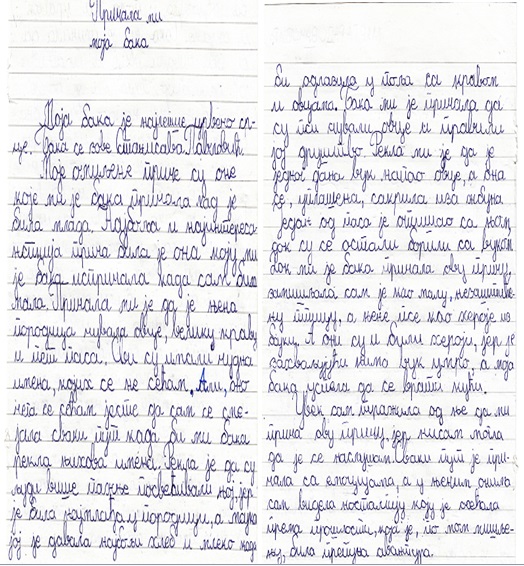 Причала ми
моја бака
Моја бака је најлепше црвено ср-
це. Бака се зове Станисава Павловић.
Моје омиљене приче су оне
које ми је бака причала кад је
била млада. Најбоља и најинтереса-
нтнија прича била је она коју ми
је бака испричала када сам била
мала. Причала ми је да је њена
породица чувала овце, велику краву
и пет паса. Сви су имали чудна
имена, којих се не сећам. Али, оно
чега се сећам јесте да сам се сме-
јала сваки пут када би ми бака
рекла њихова имена. Рекла је да су
људи више пажње посвећивали њој, јер
је била најмлађа у породици, а мајка
јој је давала најбољи хлеб и млеко када
би одлазила у поља са кравом
и овцама. Бака ми је причала да
су пси чували овце и правили
јој друштво. Рекла ми је да је
једног дана вук напао овце, а она
се, уплашена, сакрила иза жбуна.
Један од паса је отишао са њом,
док су се остали борили са вуком.
Док ми је бака причала ову причу,
замишљала сам је као малу, незаштиће-
ну птицу, а њене псе као хероје из
бајки. А они су и били хероји, јер је
захваљујући њима вук умро, а моја
бака успела да се врати кући.
Увек сам тражила од ње да ми
прича ову причу, јер нисам могла
да је се наслушам. Сваки пут је при-
чала са емоцијама, а у њеним очима
сам видела носталгију коју је осећала
према прошлости, која је, по мом мишље-
њу, била претешка авантура.